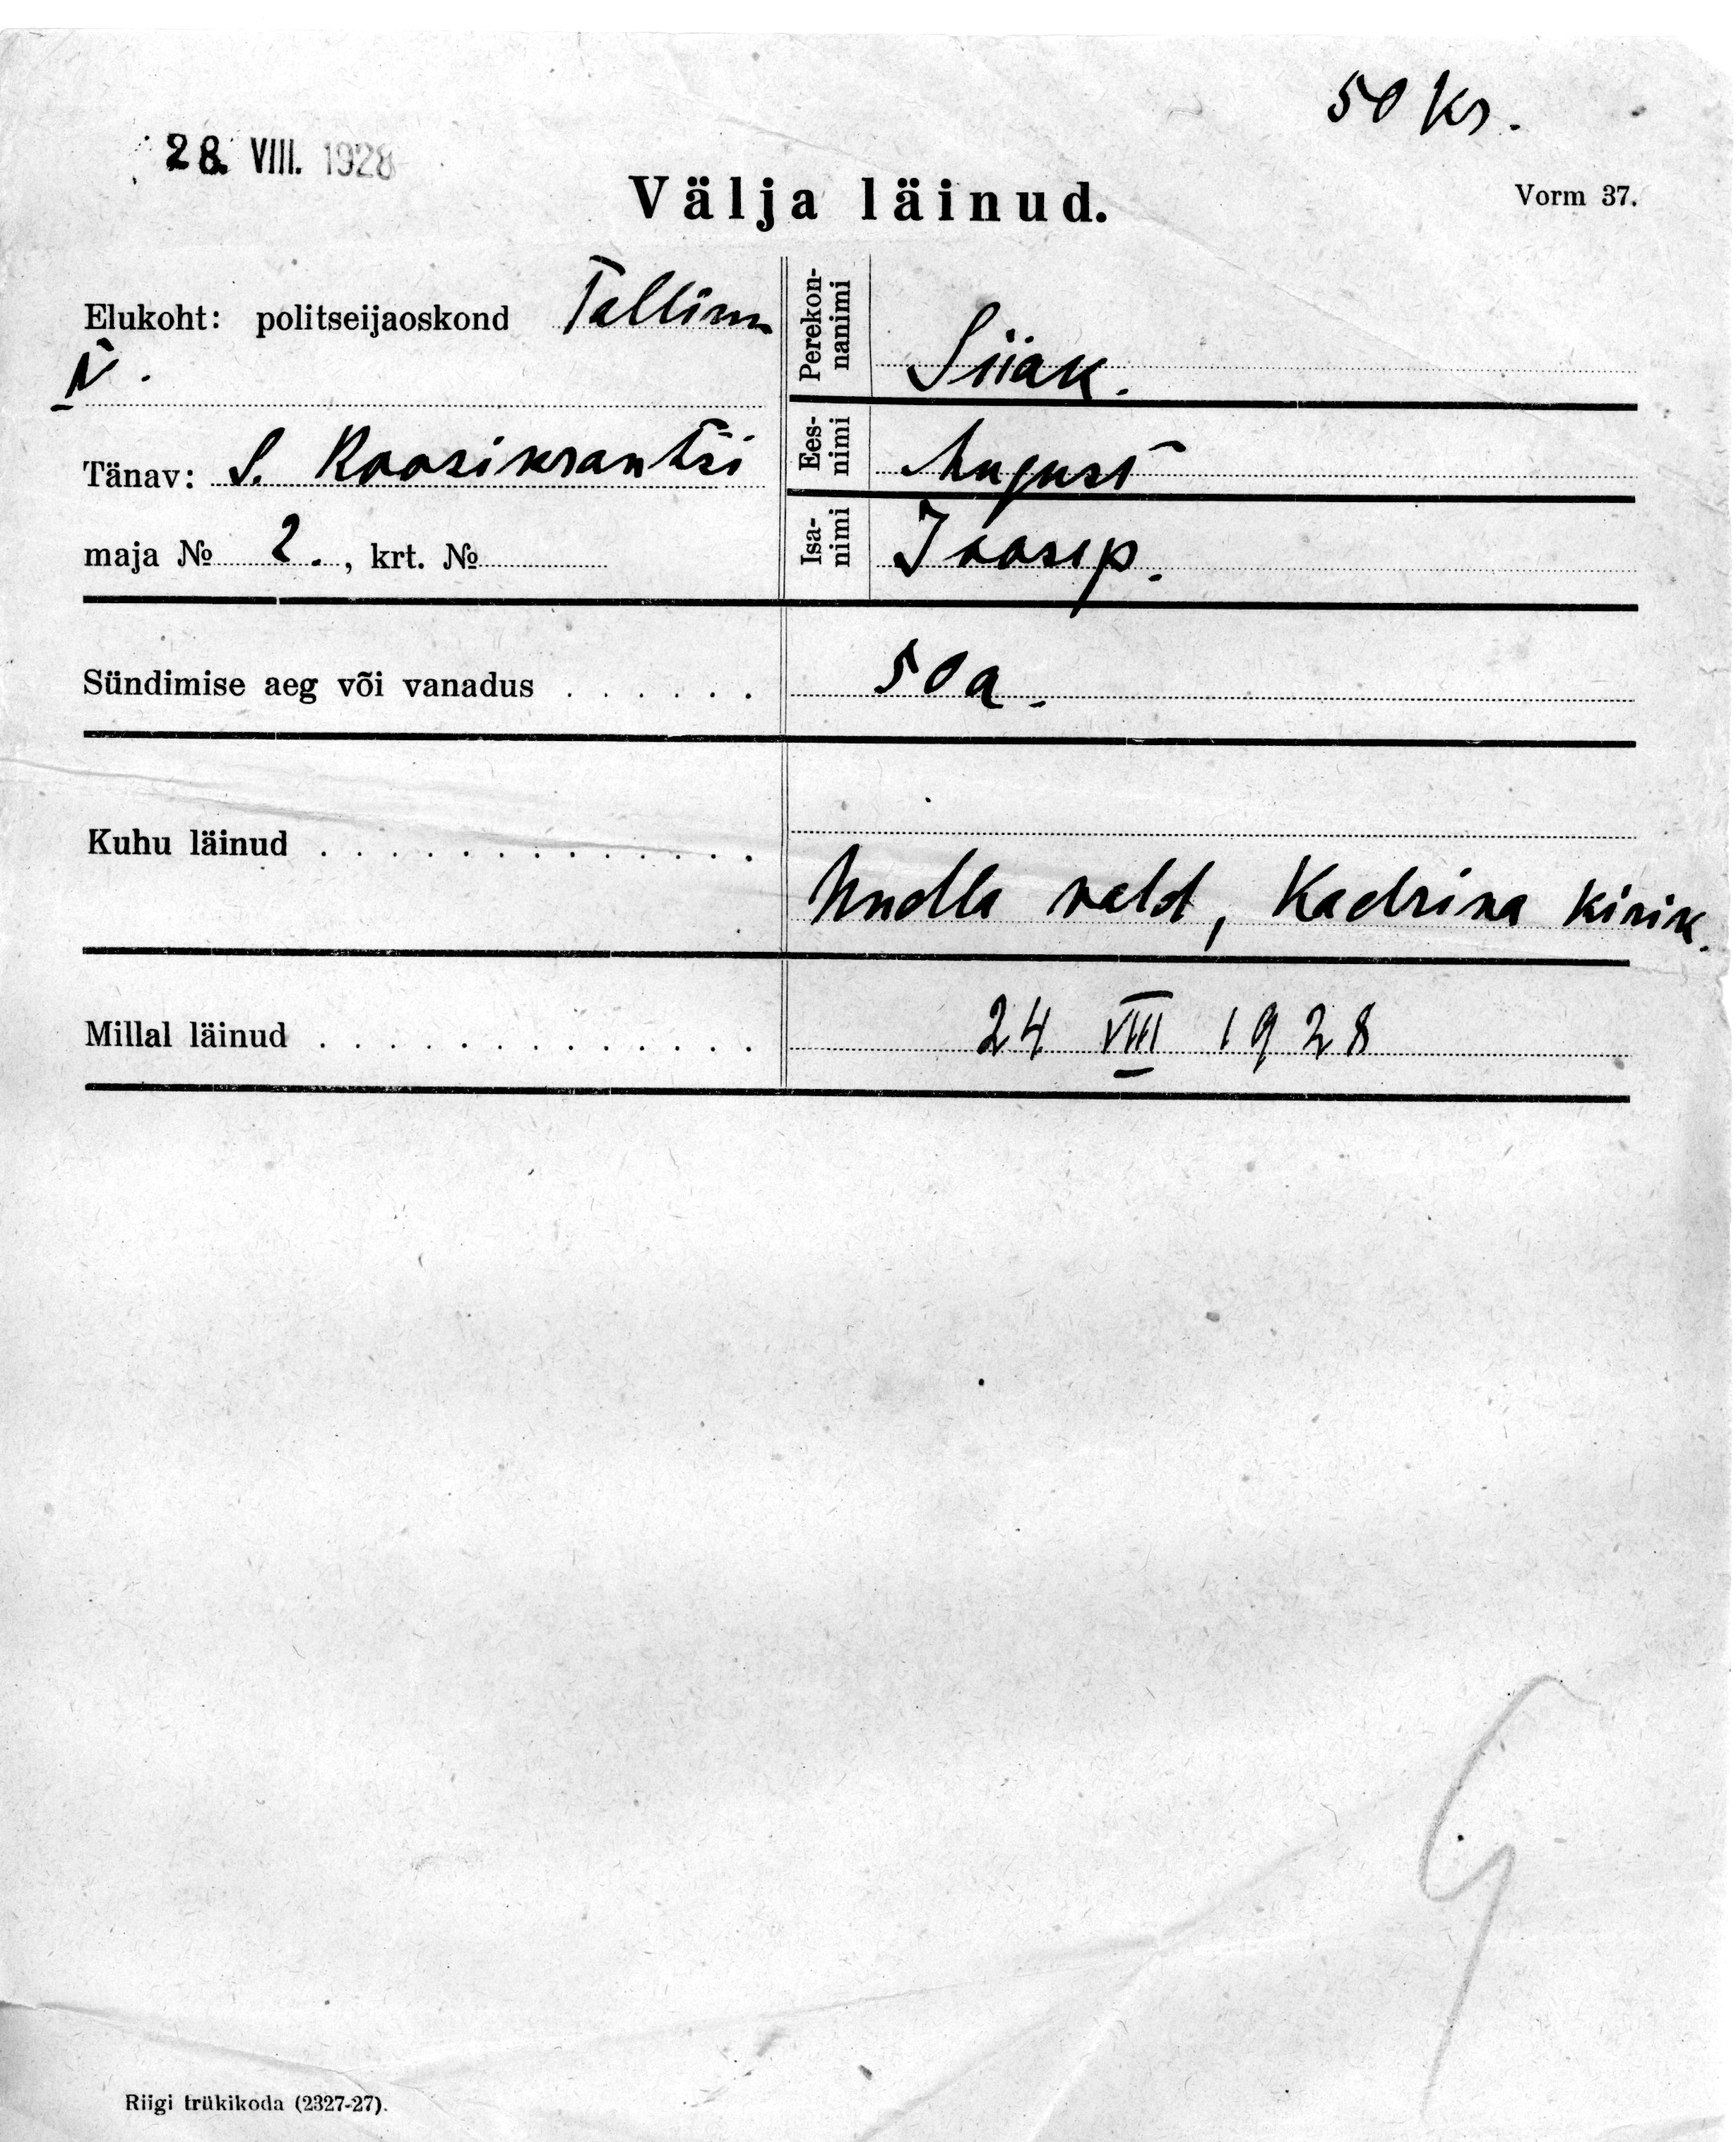 50 kr.
28. VIII. 1928
Välja läinud.
Vorm 37.
Elukoht: politseijaoskond Tallinn
IV.
Tänav: S. Roosikrantsi
maja № 2., krt. №
Perekon-
nanimi
Siiak.
Ees-
nimi
August
Isa-
nimi
Joosep.
Sündimise aeg või vanadus . . . . . . 50 a.
Kuhu läinud . . . . . . . . . . . . .
Undla vald, Kadrina kirik.
Millal läinud . . . . . . . . . . . . . 24 VIII 1928
Riigi trükikoda (2327-27).